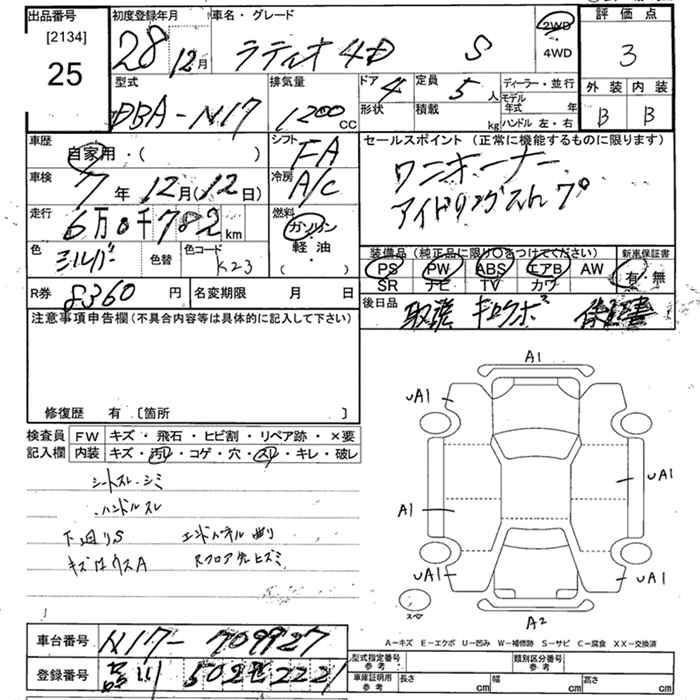 出品番号
[2134]
25
初度登録年月
28 12月
車名・グレード
ラティオ 4D S
2WD
4WD
評価点
3
外装 内装
B B
型式
DBA-N17
排気量
1200 CC
ドア 4
形状
定員 5人
積載 kg
ディーラー・並行
モデル年式 年
ハンドル 左・右
車歴
自家用・( )
シフト
FA
車検
7年 12月(12日)
冷房
A/C
走行
6万0千782km
燃料
ガソリン
軽油
( )
色
シルバー
色替
色コード
K23
セールスポイント (正常に機能するものに限ります)
ワンオーナー
アイドリングストップ
装備品 (純正品に限り○をつけてください)
PS PW ABS エアB AW
SR ナビ TV カワ
新車保証書
有・無
R券 8360円
名変期限 月 日
後日品
取説 キロクボ 保証書
注意事項申告欄 (不具合内容等は具体的に記入して下さい)
修復歴 有 [箇所 ]
検査員
記入欄
FW キズ・飛石・ヒビ割・リペア跡・×要
内装 キズ・汚れ・コゲ・穴・スレ・キレ・破レ
シートスレ・シミ
ハンドルスレ
下廻りS エンドパネル曲り
A1
UA1
UA1
A1
UA1
UA1
A2
スペア
A－キズ E－エクボ U－凹み W－補修跡 S－サビ C－腐食 XX－交換済
車台番号
N17-709927
登録番号
502 2221
型式指定番号
参考
類別区分番号
参考
車庫証明用
参考
長さ cm
幅 cm
高さ cm